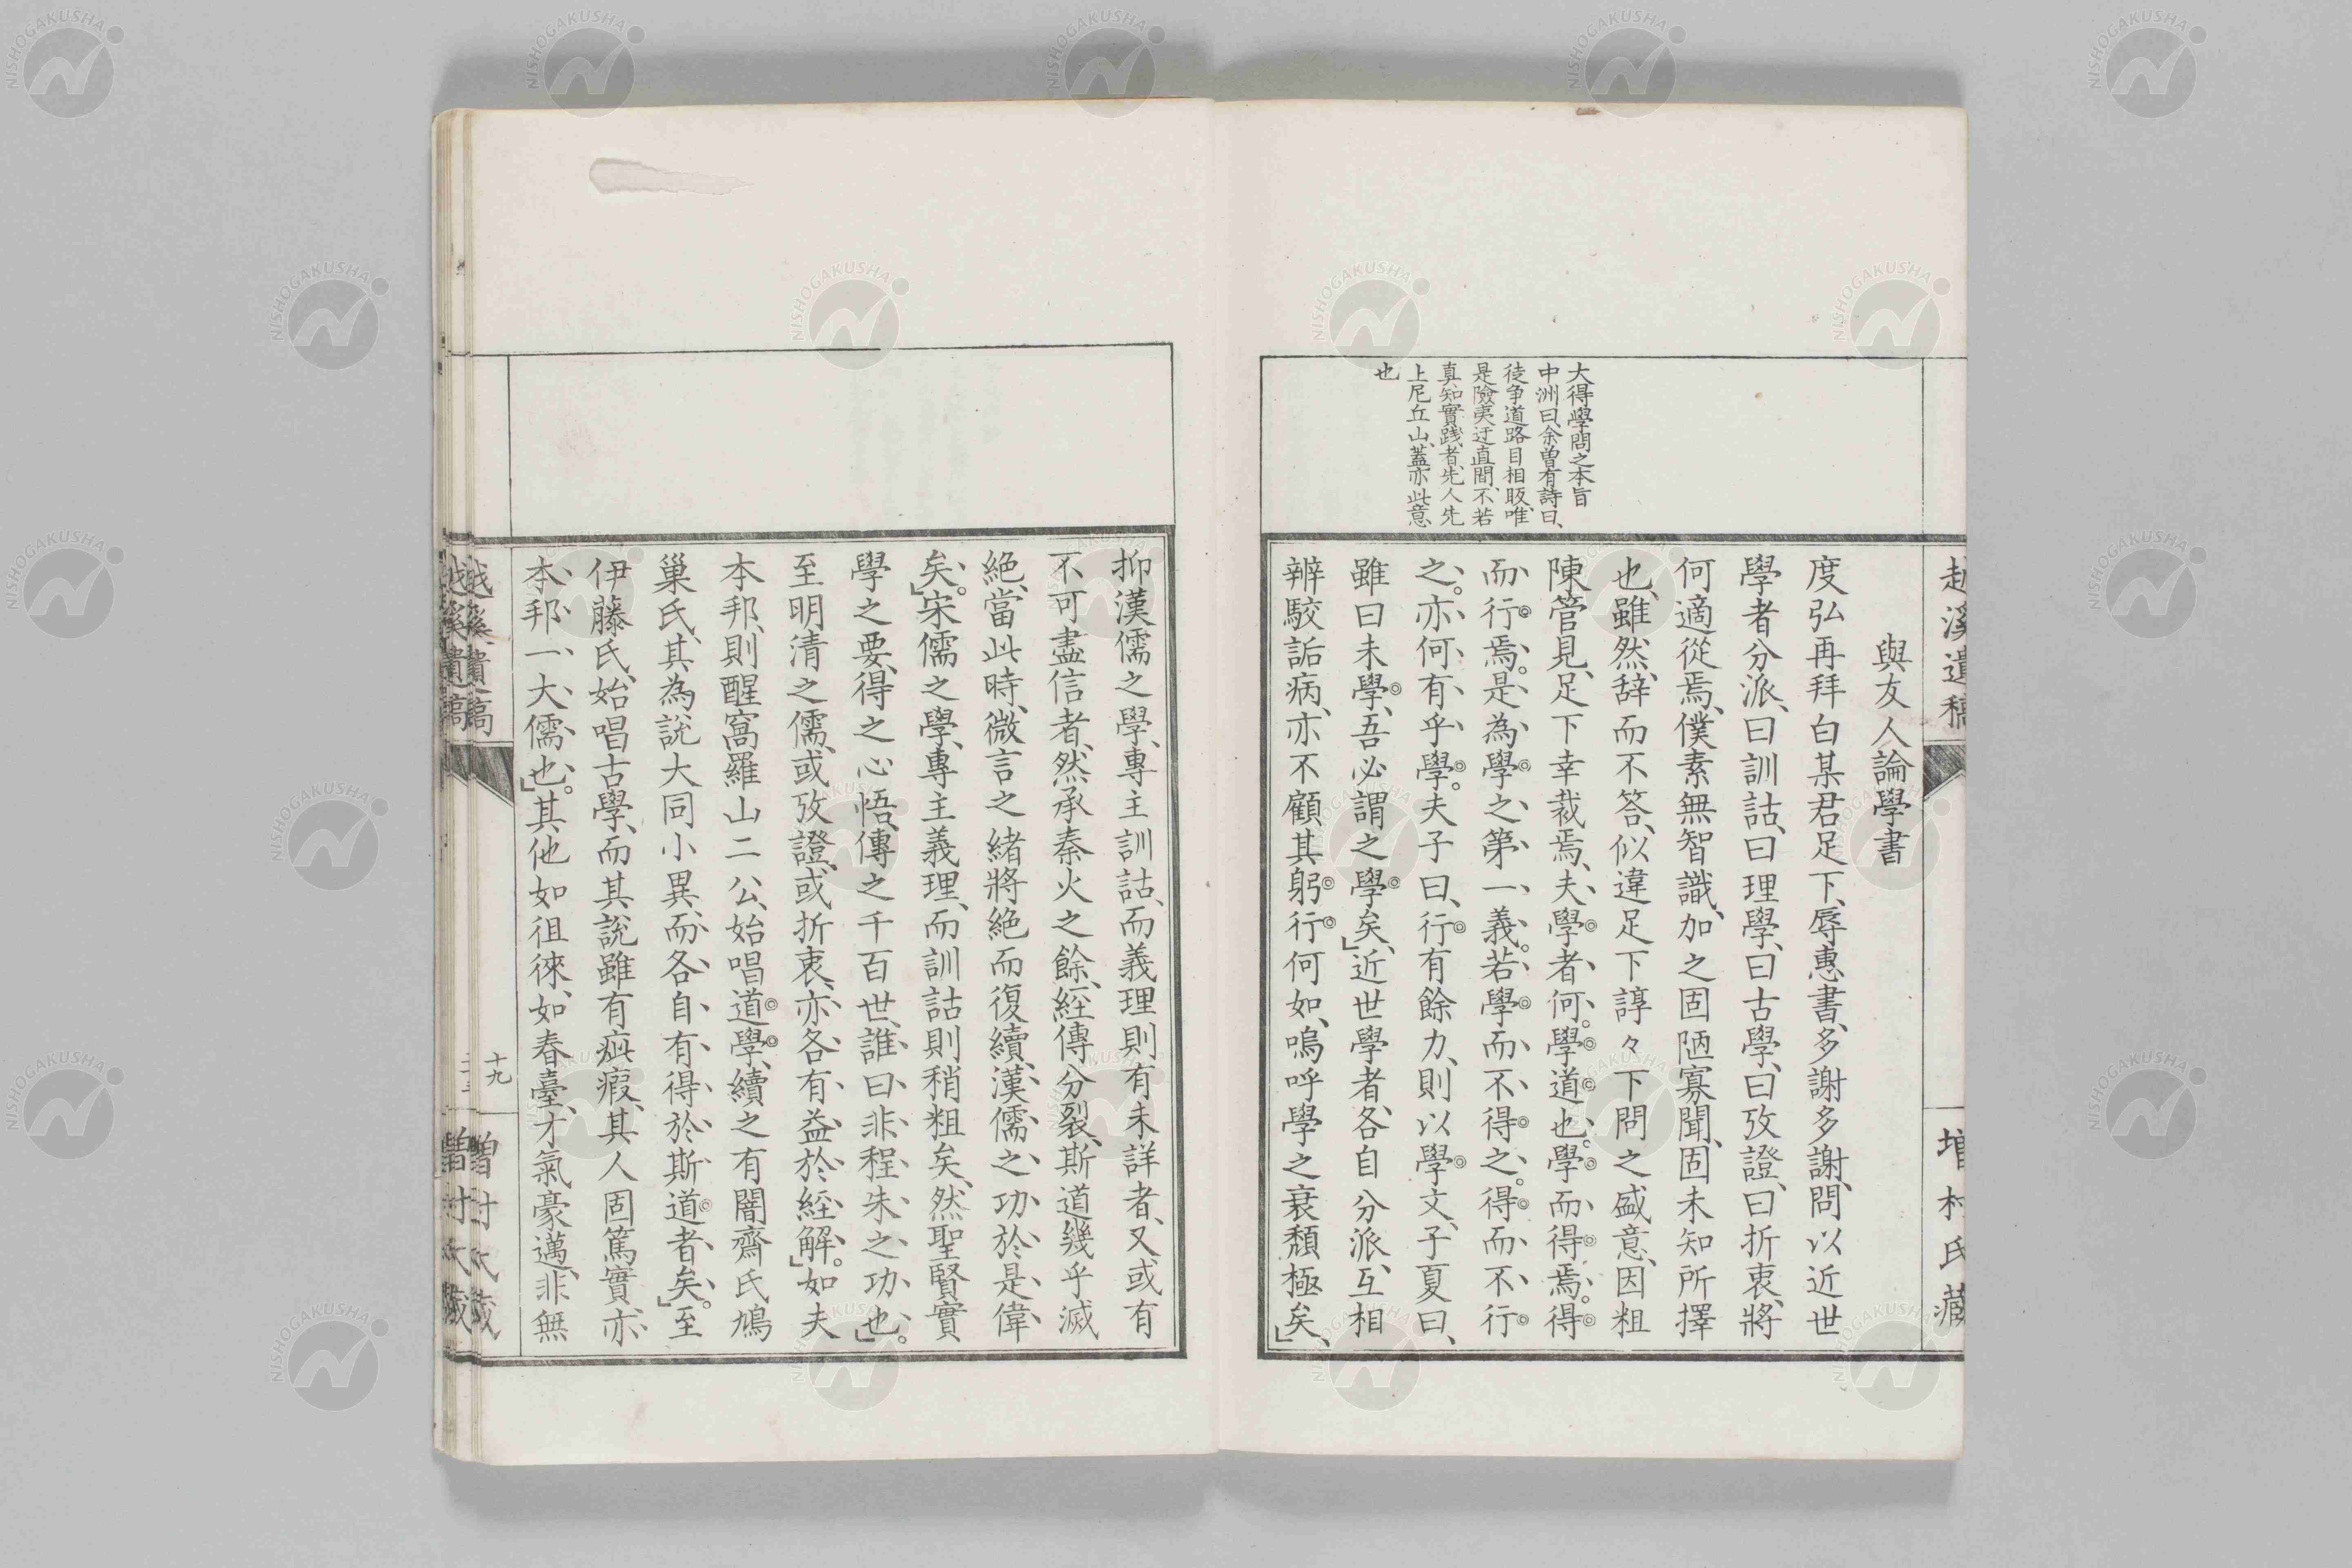 越溪遺稿
增村氏藏
大得學問之本旨
中洲曰、余曽有詩曰、
徒爭道路目相眅、唯
是險夷迂直間、不若
真知實踐者、先人先
上尼丘山、蓋亦此意
也
與友人論學書
度弘再拜白某君足下、辱惠書、多謝多謝、問以近世
學者分派、曰訓詁、曰理學、曰古學、曰攷證、曰折衷、將
何適從焉、僕素無智識、加之固陋寡聞、固未知所擇
也、雖然、辞而不答、似違足下諄々下問之盛意、因粗
陳管見、足下幸裁焉、夫學者何。學道也。學而得焉。得
而行焉。是為學之第一義。若學而不得之。得而不行
之。亦何有乎學。夫子曰、行有餘力、則以學文、子夏曰、
雖曰未學、吾必謂之學矣」近世學者、各自分派、互相
辨駮詬病、亦不顧其躬行何如、嗚呼學之衰頹極矣」、
抑漢儒之學、專主訓詁、而義理則有未詳者、又或有
不可盡信者、然承秦火之餘、經傳分裂、斯道幾乎滅
絕、當此時、微言之緒將絕而復續、漢儒之功、於是偉
矣。」宋儒之學、專主義理、而訓詁則稍粗矣、然聖賢實
學之要、得之心悟、傳之千百世、誰曰非程朱之功也。」
至明清之儒、或攷證、或折衷、亦各有益於經解。」如夫
本邦、則醒窩羅山二公、始唱道學、續之有闇齋氏鳩
巢氏、其為說大同小異、而各自有得於斯道者矣。」至
伊藤氏、始唱古學、而其說雖有疵瑕、其人固篤實、亦
本邦一大儒也。」其他如徂徠、如春臺、才氣豪邁、非無
越溪遺稿
十九
增村氏藏